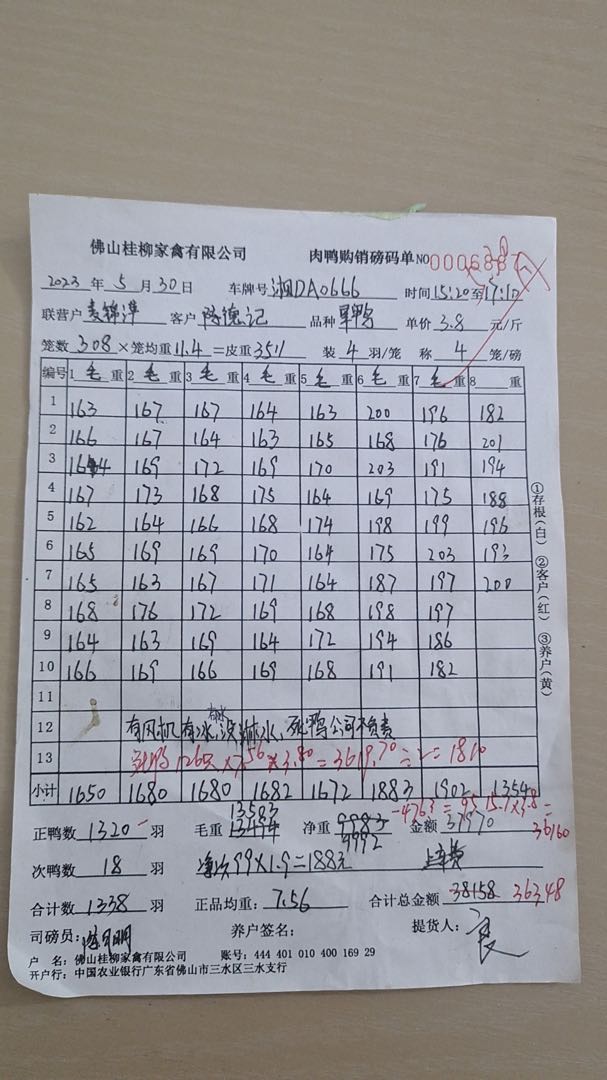 佛山桂柳家禽有限公司 肉鸭购销磅码单 NO 0006887
2023 年 5 月 30 日 车牌号 湘DA0666 时间 15:20 至 17:10
联营户 麦锦洋 客户 陈德记 品种 单价 3.8 元/斤
笼数 308 ×笼均重 11.4 =皮重 3511 装 4 羽/笼 称 4 笼/磅
编号 1 毛 重 2 毛 重 3 毛 重 4 毛 重 5 毛 重 6 毛 重 7 毛 重 8 重
1 163 167 167 164 163 200 196 182
2 166 167 164 163 165 168 176 201
3 164 169 172 169 170 203 191 194
4 167 173 168 175 164 169 175 188
5 162 164 166 168 174 198 199 196
6 165 169 169 170 164 175 203 193
7 165 163 167 171 164 187 197 200
8 168 176 172 169 168 198 197
9 164 163 169 164 172 194 186
10 166 169 166 169 168 191 182
11
12 有风机有冰,没淋水,死鸭公司不负责
13 死鸭126只×7.56×3.80=3619.70÷2=1810
小计 1650 1680 1680 1682 1672 1883 1902 1354
13503 -476.3=9515.7×3.8=
正鸭数 1320 羽 毛重 13494 净重 9983 金额 37970 36160
9992
次鸭数 18 羽 99×1.9=188元
合计数 1338 羽 正品均重: 7.56 合计总金额 38158 36348
司磅员: 养户签名: 提货人:
户 名: 佛山桂柳家禽有限公司 账号: 444 401 010 400 169 29
开户行: 中国农业银行广东省佛山市三水区三水支行
①存根(白) ②客户(红) ③养户(黄)